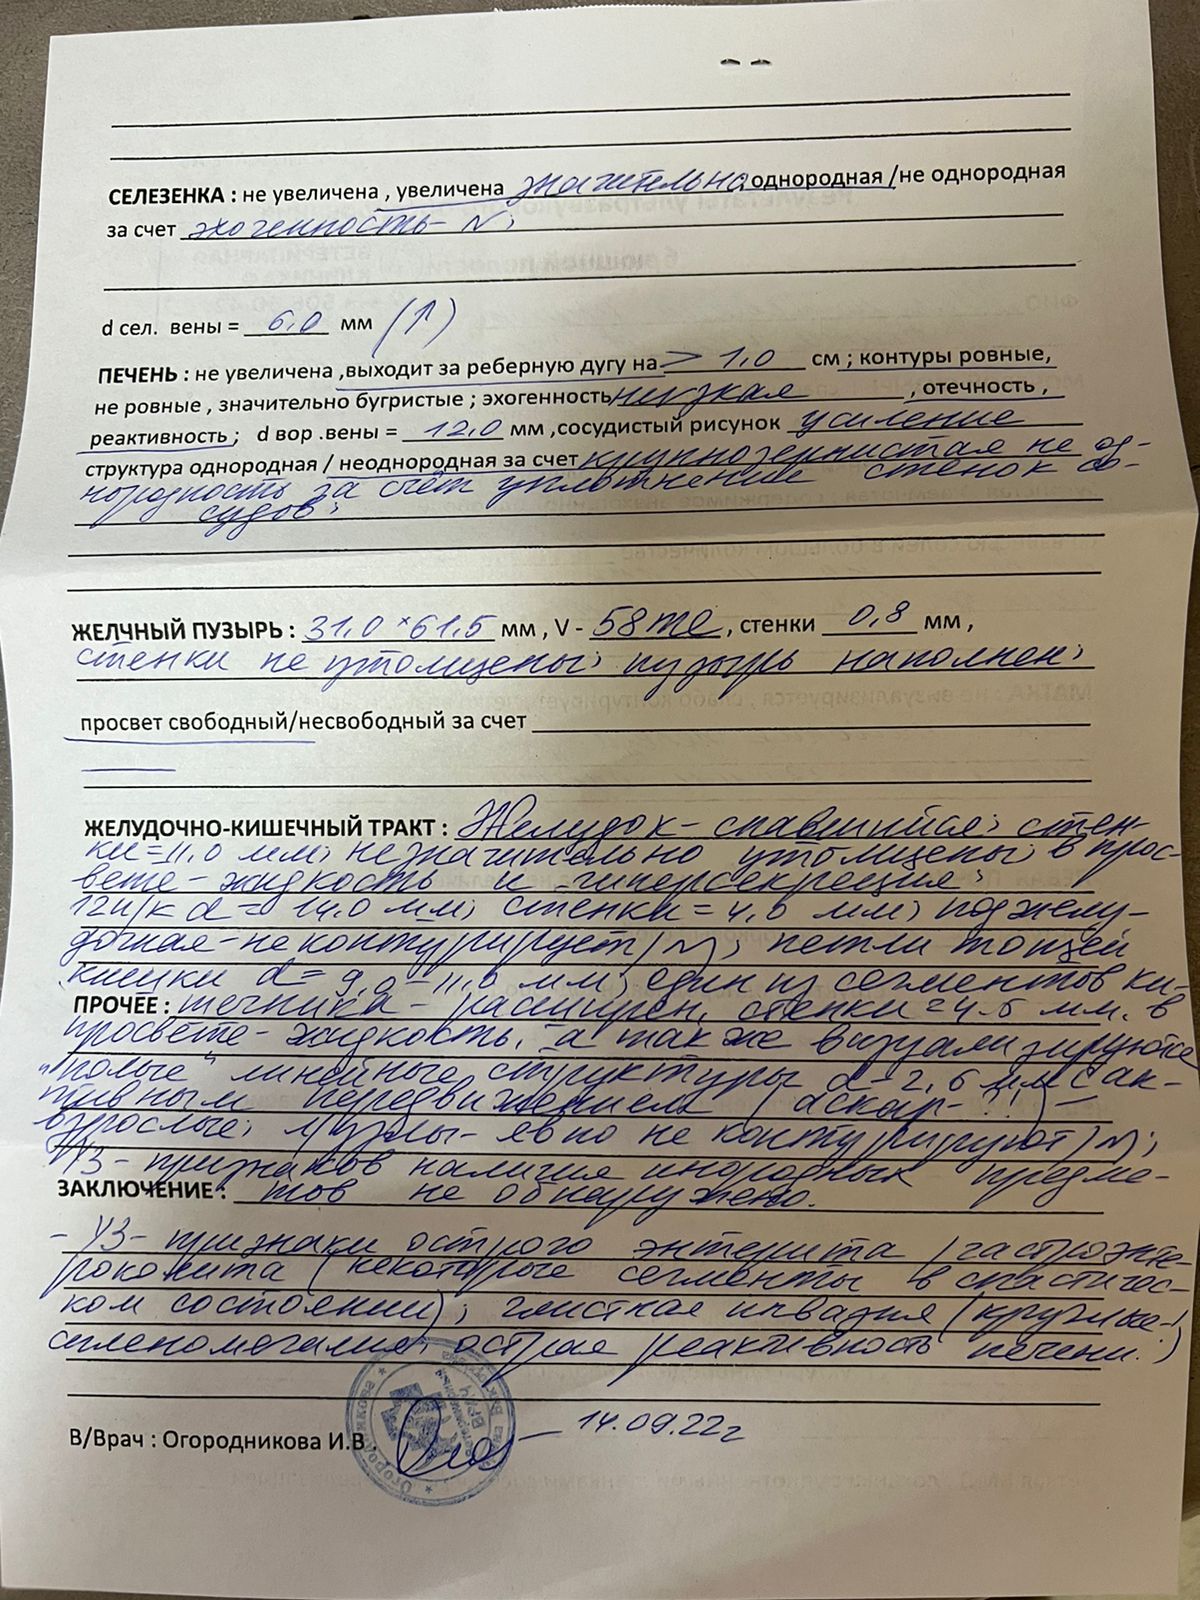 СЕЛЕЗЕНКА : не увеличена , увеличена значительно, однородная /не однородная
за счет эхогенность - N ;
d сел. вены = 6,0 мм (↑)
ПЕЧЕНЬ : не увеличена ,выходит за реберную дугу на > 1,0 см ; контуры ровные,
не ровные , значительно бугристые ; эхогенность низкая , отечность ,
реактивность ; d вор .вены = 12,0 мм ,сосудистый рисунок усиление
структура однородная / неоднородная за счет крупнозернистая не од-
нородность за счёт уплотнение стенок со-
судов;
ЖЕЛЧНЫЙ ПУЗЫРЬ : 31,0 × 61,5 мм , V - 58 me , стенки 0,8 мм ,
стенки не утолщены; пузырь наполнен;
просвет свободный/несвободный за счет
ЖЕЛУДОЧНО-КИШЕЧНЫЙ ТРАКТ : Желудок - спавшийся; стен-
ки = 11,0 мм; незначительно утолщены; в прос-
вете - жидкость и гиперсекреция;
12п/к d = 14,0 мм; стенки = 4,6 мм; поджелу-
дочная - не контурирует /N/; петли тощей
кишки d = 9,0 - 11,6 мм; один из сегментов ки-
ПРОЧЕЕ : шечника - расширен, стенки = 4.5 мм. в
просвете - жидкость, а так же визуализируются
"полые" линейные структуры d - 2,6 мм с ак-
тивным передвижением (аскар- ?!) -
взрослые; л/узлы - явно не контурируют /N/;
УЗ - признаков наличия инородных предме-
ЗАКЛЮЧЕНИЕ : тов не обнаружено.
- УЗ - признаки острого энтерита /гастроэнте-
роколита (некоторые сегменты в спастичес-
ком состоянии); глистная инвазия (круглые - !
спленомегалия; острая реактивность печени.)
В/Врач : Огородникова И.В. 14.09.22г